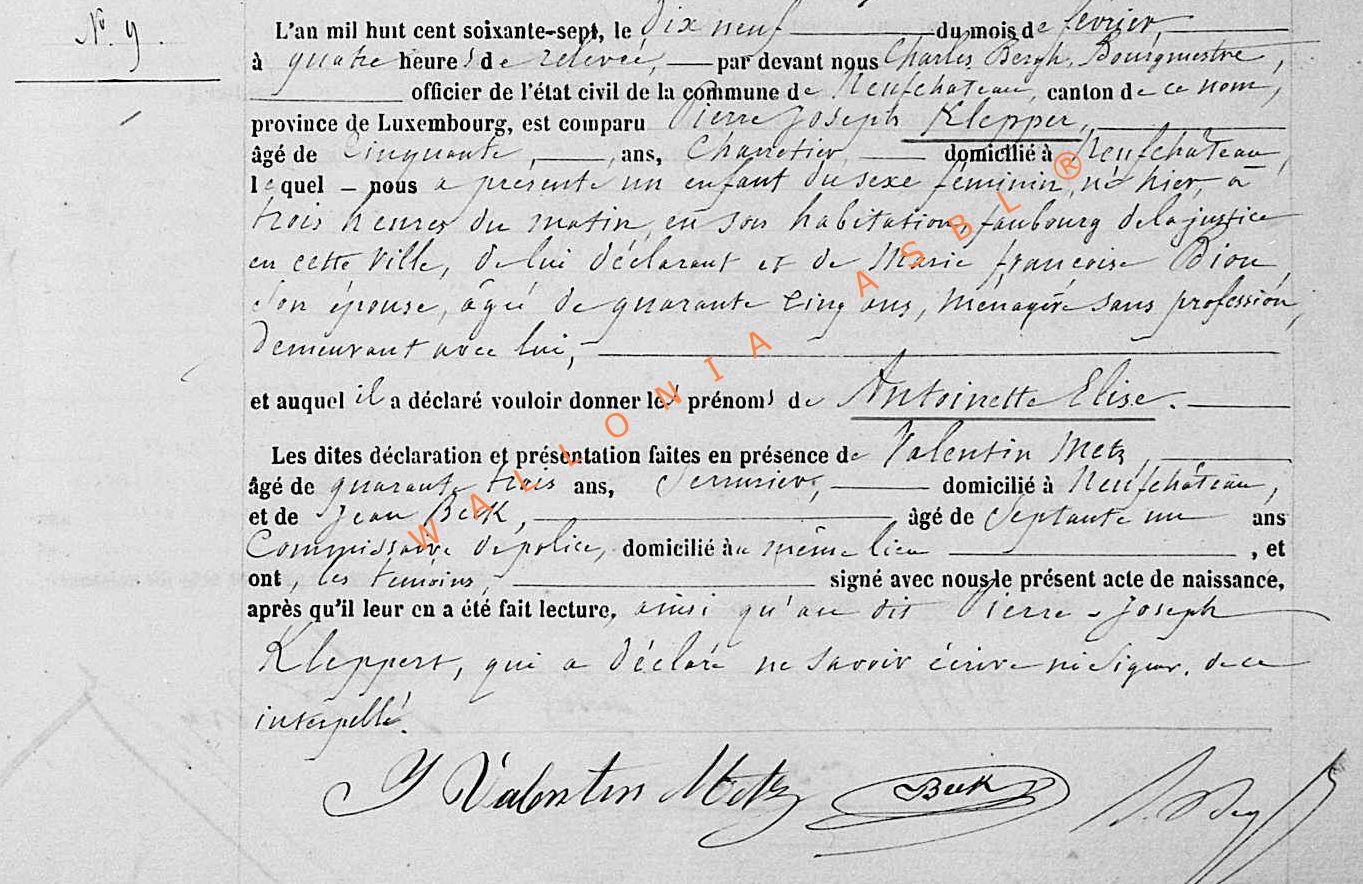 N° 9.
L'an mil huit cent soixante-sept, le Dix neuf du mois de février,
à quatre heures de relevée, par devant nous Charles Bergh, Bourgmestre,
officier de l'état civil de la commune de Neufchateau, canton de ce nom,
province de Luxembourg, est comparu Pierre Joseph Klepper,
âgé de Cinquante, ans, Charretier, domicilié à Neufchâteau,
lequel nous a présenté un enfant du sexe féminin, né hier, à
trois heures du matin, en son habitation, faubourg de la justice
en cette Ville, de lui déclarant et de Marie françoise Dion,
son épouse, âgée de quarante cinq ans, ménagère sans profession,
demeurant avec lui,
et auquel il a déclaré vouloir donner les prénoms de Antoinette Elise.
Les dites déclaration et présentation faites en présence de Valentin Metz,
âgé de quarante trois ans, Serrurier, domicilié à Neufchâteau,
et de Jean Beck, âgé de Septante un ans
Commissaire de police, domicilié au même lieu, et
ont, les témoins, signé avec nous le présent acte de naissance,
après qu'il leur en a été fait lecture, ainsi qu'au dit Pierre-Joseph
Kleppert, qui a déclaré ne savoir écrire ni signer, de ce
interpellé.
Valentin Metz Beck
WALLONIA ASBL ®